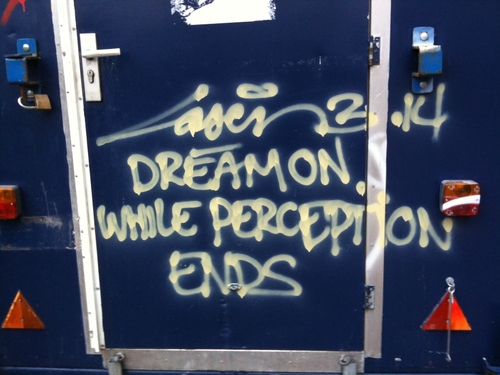 Laser 3.14
DREAM ON,
WHILE PERCEPTION
ENDS